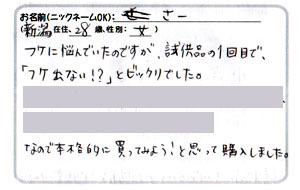 お名前(ニックネームOK): さー
(新潟在住、28歳、性別: 女)
フケに悩んでいたのですが、試供品の1回目で、
「フケ出ない!?」とビックリでした。
なので本格的に買ってみよう!と思って購入しました。